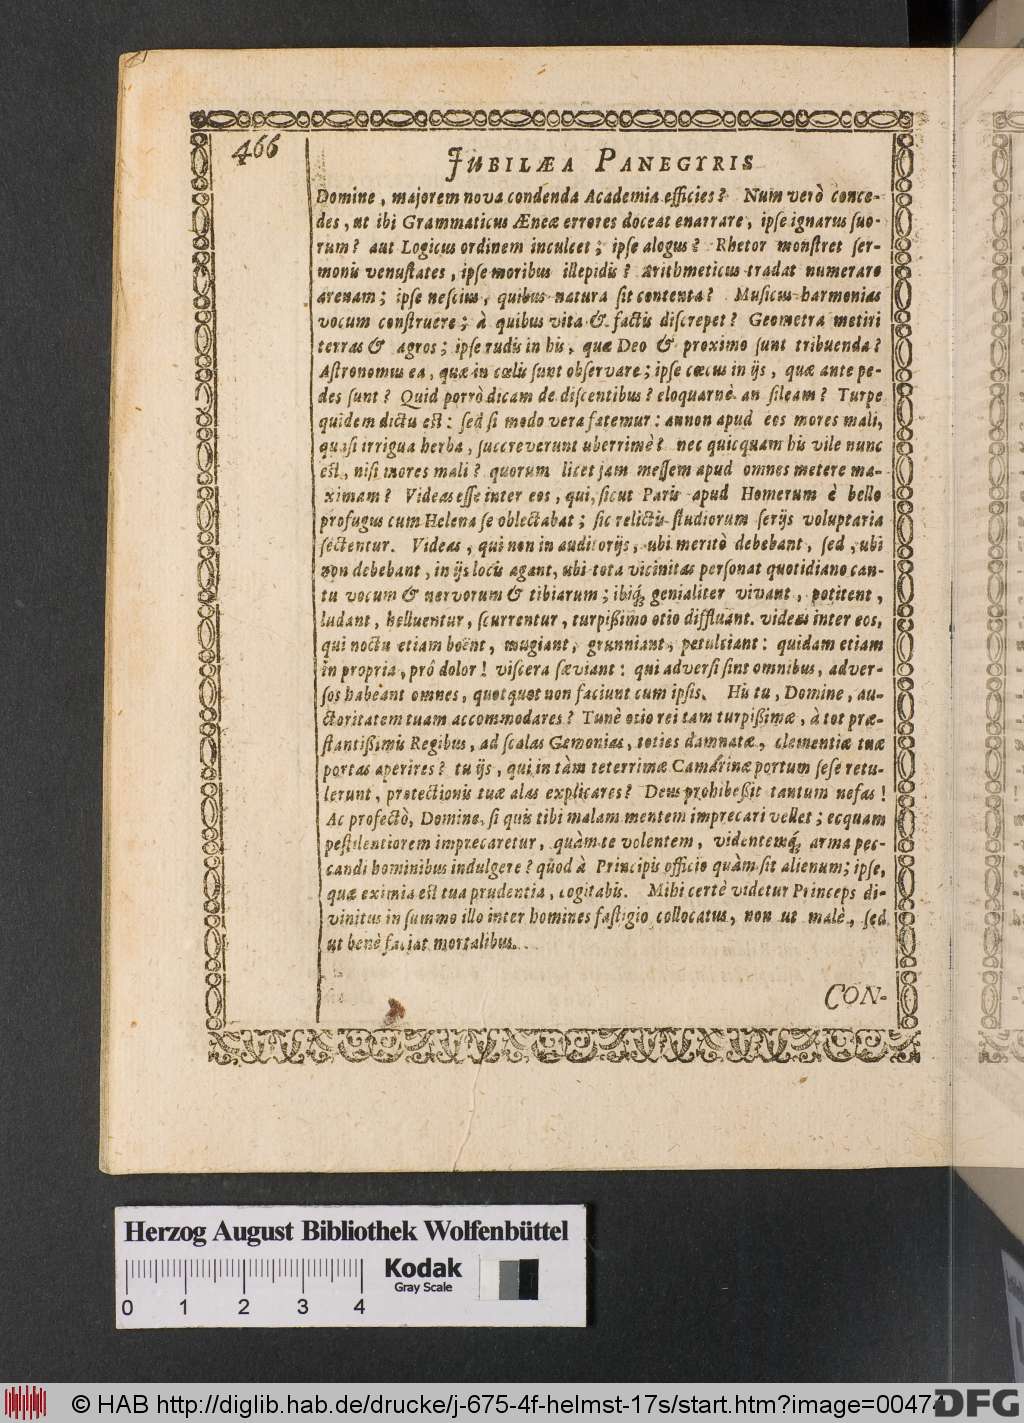 466
JUBILÆA PANEGYRIS
Domine, majorem nova condenda Academia efficies? Num verò conce-
des, ut ibi Grammaticus Æneæ errores doceat enarrare, ipſe ignarus ſuo-
rum? aut Logicus ordinem inculcet; ipſe alogus? Rhetor monſtret ſer-
monis venuſtates, ipſe moribus illepidis? Arithmeticus tradat numerare
arenam; ipſe neſcius, quibus natura ſit contenta? Muſicus harmonias
vocum conſtruere; à quibus vita & factis diſcrepet? Geometra metiri
terras & agros; ipſe rudis in his, quæ Deo & proximo ſunt tribuenda?
Aſtronomus ea, quæ in cœlis ſunt obſervare; ipſe cœcus in ijs, quæ ante pe-
des ſunt? Quid porrò dicam de diſcentibus? eloquarnè an ſileam? Turpe
quidem dictu eſt: ſed ſi modo vera fatemur: annon apud eos mores mali,
quaſi irrigua herba, ſuccreverunt uberrimè? nec quicquam his vile nunc
eſt, niſi mores mali? quorum licet jam meſſem apud omnes metere ma-
ximam? Videas eſſe inter eos, qui, ſicut Paris apud Homerum è bello
profugus cum Helena ſe oblectabat; ſic relictis ſtudiorum ſerijs voluptaria
ſectentur. Videas, qui non in auditorijs, ubi meritò debebant, ſed, ubi
non debebant, in ijs locis agant, ubi tota vicinitas perſonat quotidiano can-
tu vocum & nervorum & tibiarum; ibiq́; genialiter vivant, potitent,
ludant, helluentur, ſcurrentur, turpißimo otio diffluant. videas inter eos,
qui noctu etiam boënt, mugiant, grunniant, petulciant: quidam etiam
in propria, pró dolor! viſcera ſæviant: qui adverſi ſint omnibus, adver-
ſos habeant omnes, quotquot non faciunt cum ipſis. His tu, Domine, au-
ctoritatem tuam accommodares? Tunè otio rei tam turpißimæ, à tot præ-
ſtantißimis Regibus, ad ſcalas Gemonias, toties damnatæ, clementiæ tuæ
portas aperires? tu ijs, qui in tàm teterrimæ Camarinæ portum ſeſe retu-
lerunt, protectionis tuæ alas explicares? Deus prohibeßit tantum nefas!
Ac profectò, Domine, ſi quis tibi malam mentem imprecari vellet; ecquam
peſtilentiorem imprecaretur, quàm te volentem, videntemq́; arma pec-
candi hominibus indulgere? quod à Principis officio quàm ſit alienum; ipſe,
quæ eximia eſt tua prudentia, cogitabis. Mihi certè videtur Princeps di-
vinitus in ſummo illo inter homines faſtigio collocatus, non ut malè, ſed
ut benè faciat mortalibus.
CON-
Herzog August Bibliothek Wolfenbüttel
Kodak
Gray Scale
0 1 2 3 4
© HAB http://diglib.hab.de/drucke/j-675-4f-helmst-17s/start.htm?image=00474
DFG